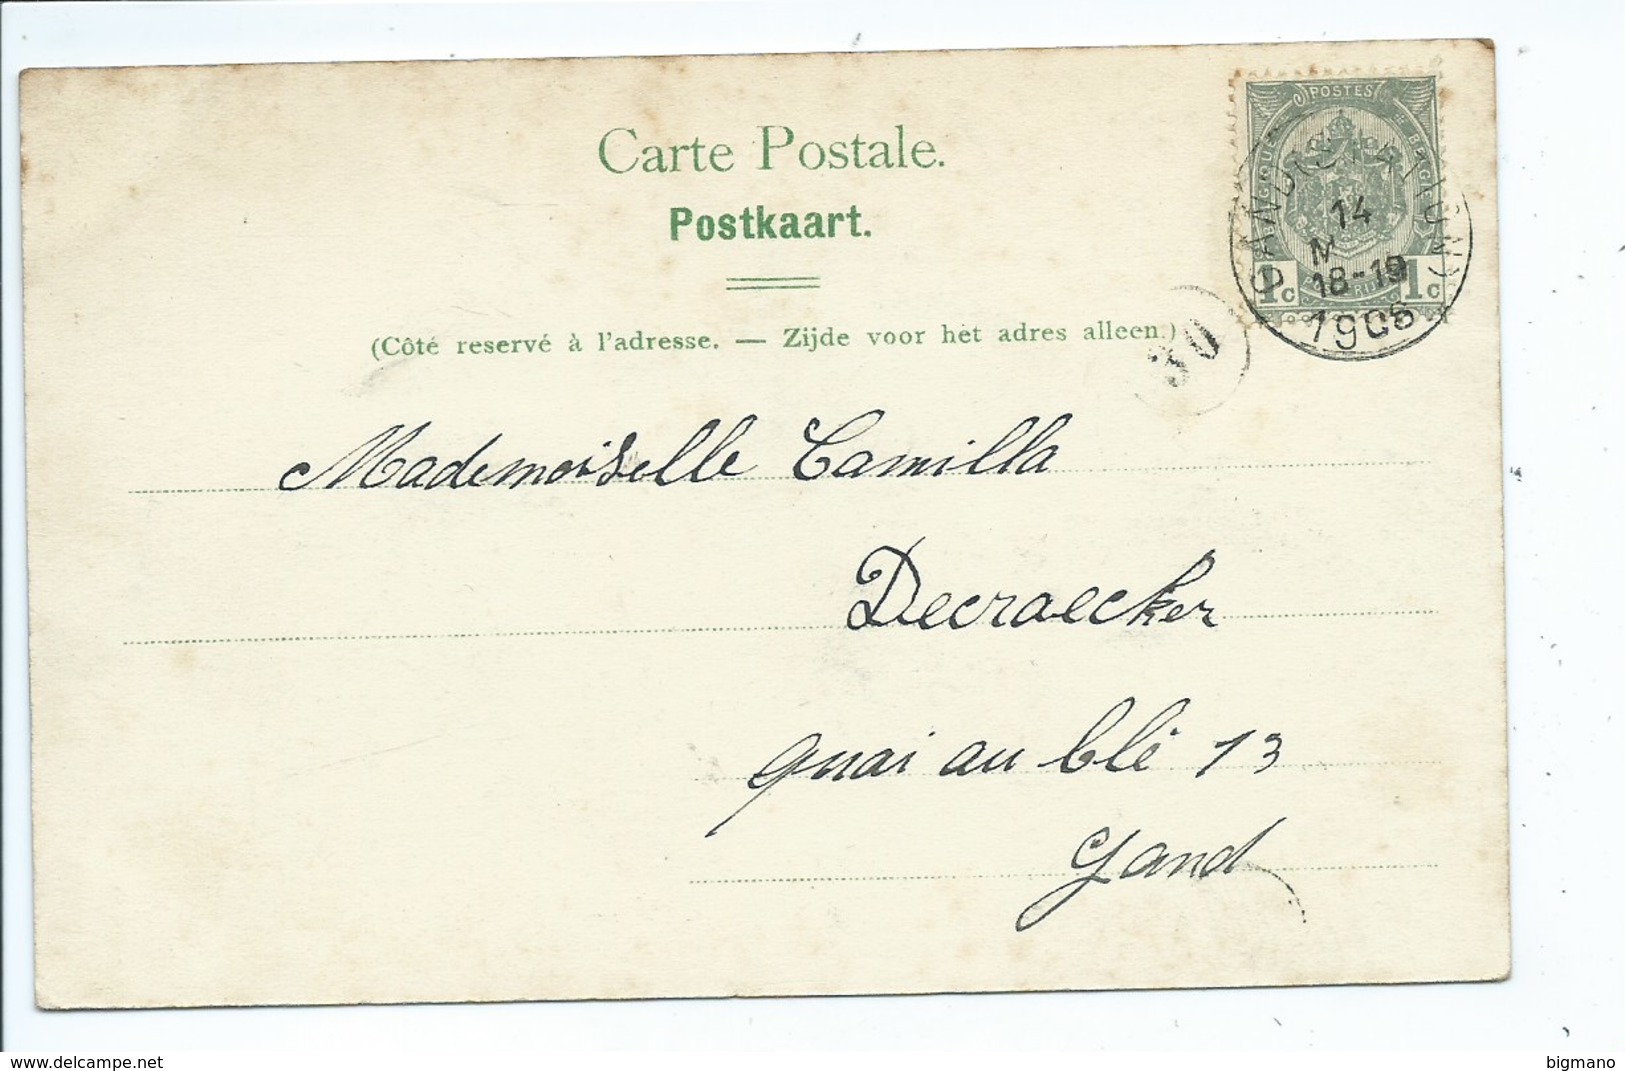 Carte Postale.
Postkaart.
(Côté reservé à l'adresse. — Zijde voor het adres alleen.)
POSTES
BELGIQUE
1c 1c
14
M
18-19
1906
30
Mademoiselle Camilla
Decraecker
quai au blé 13
Gand
delcampe.net
bigmano